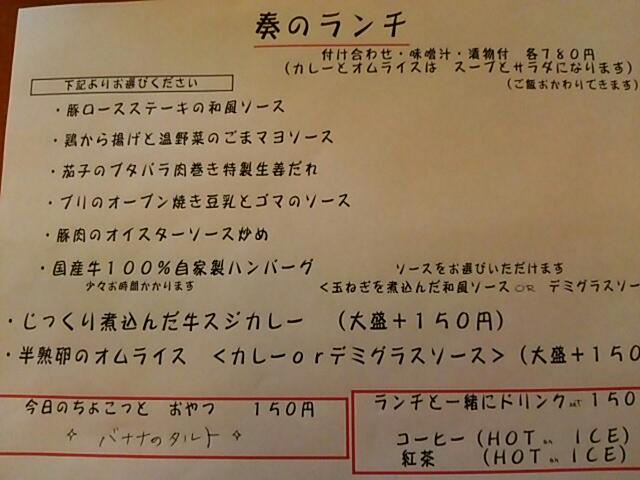 奏のランチ
付け合わせ・味噌汁・漬物付 各780円
(カレーとオムライスは スープとサラダになります)
(ご飯おかわりできます)
下記よりお選びください
・豚ロースステーキの和風ソース
・鶏から揚げと温野菜のごまマヨソース
・茄子のブタバラ肉巻き特製生姜だれ
・ブリのオーブン焼き豆乳とゴマのソース
・豚肉のオイスターソース炒め
・国産牛100%自家製ハンバーグ ソースをお選びいただけます
少々お時間かかります <玉ねぎを煮込んだ和風ソース OR デミグラスソー
・じっくり煮込んだ牛スジカレー (大盛+150円)
・半熟卵のオムライス <カレーorデミグラスソース> (大盛+150
今日のちょこっと おやつ 150円
✧ バナナのタルト ✧
ランチと一緒にドリンク 150
コーヒー (HOT or ICE)
紅茶 (HOT or ICE)